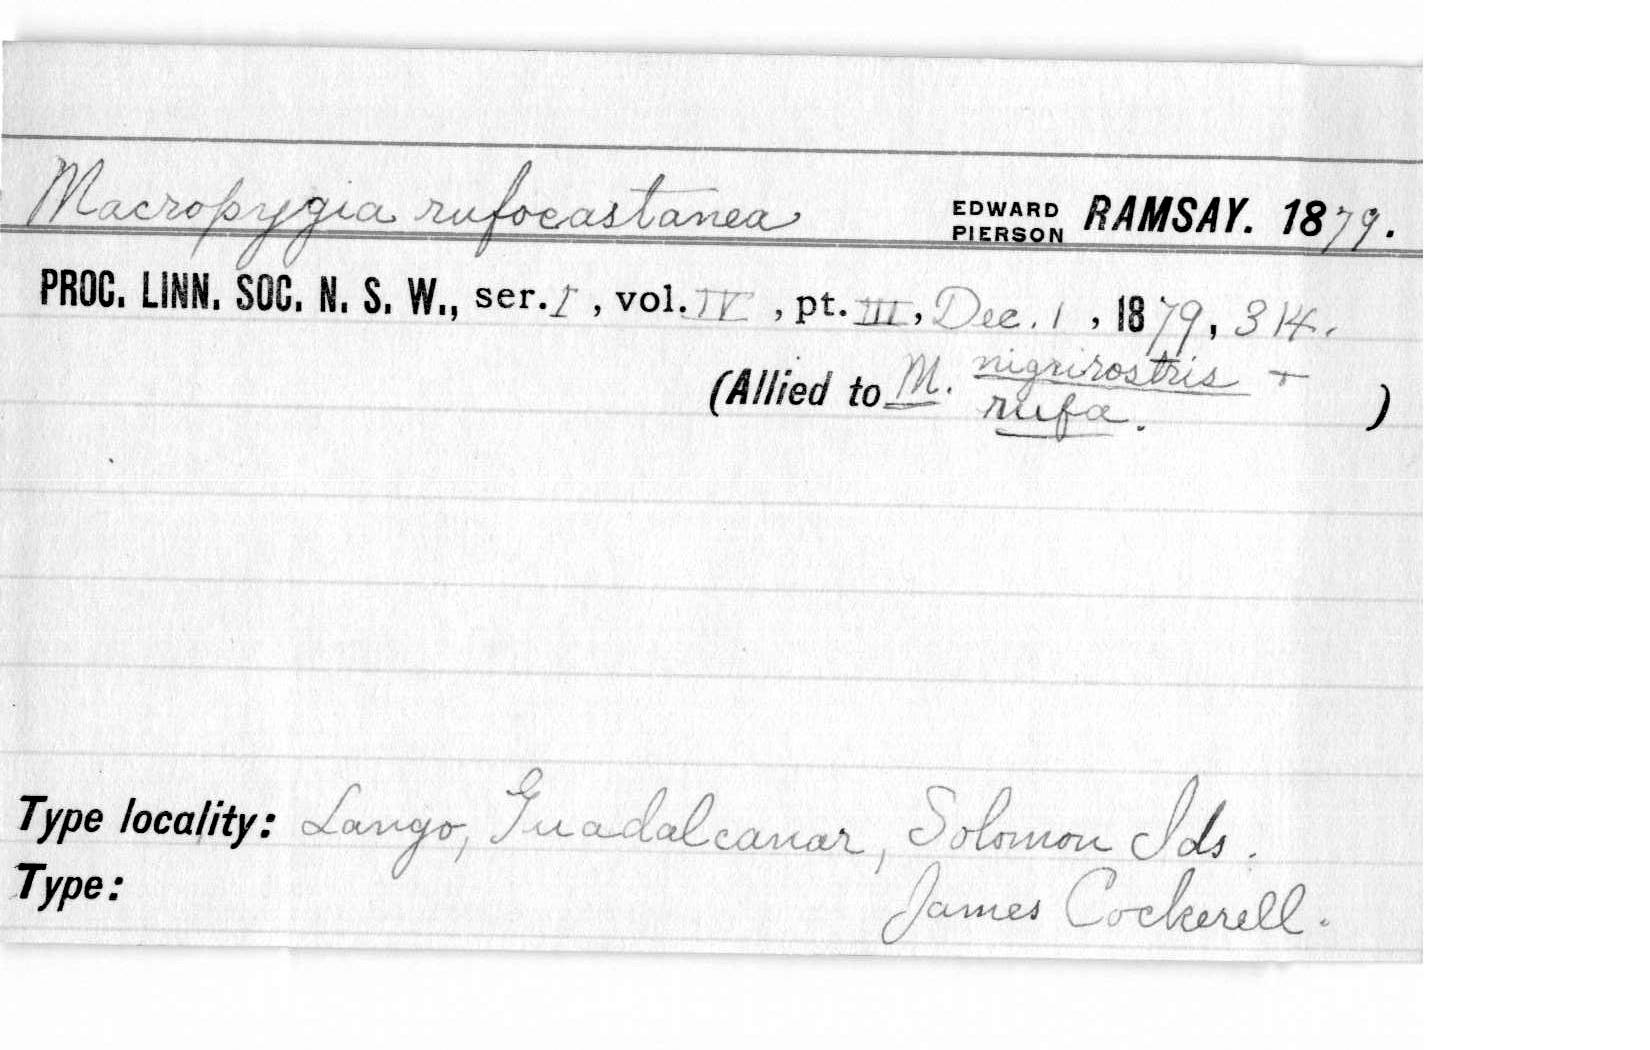 Macropygia rufocastanea EDWARD PIERSON RAMSAY. 1879.
PROC. LINN. SOC. N. S. W., ser. I, vol. IV, pt. III, Dec. 1, 1879, 314.
(Allied to M. nigrirostris +
rufa. )
Type locality: Lango, Guadalcanar, Solomon Ids.
Type: James Cockerell.